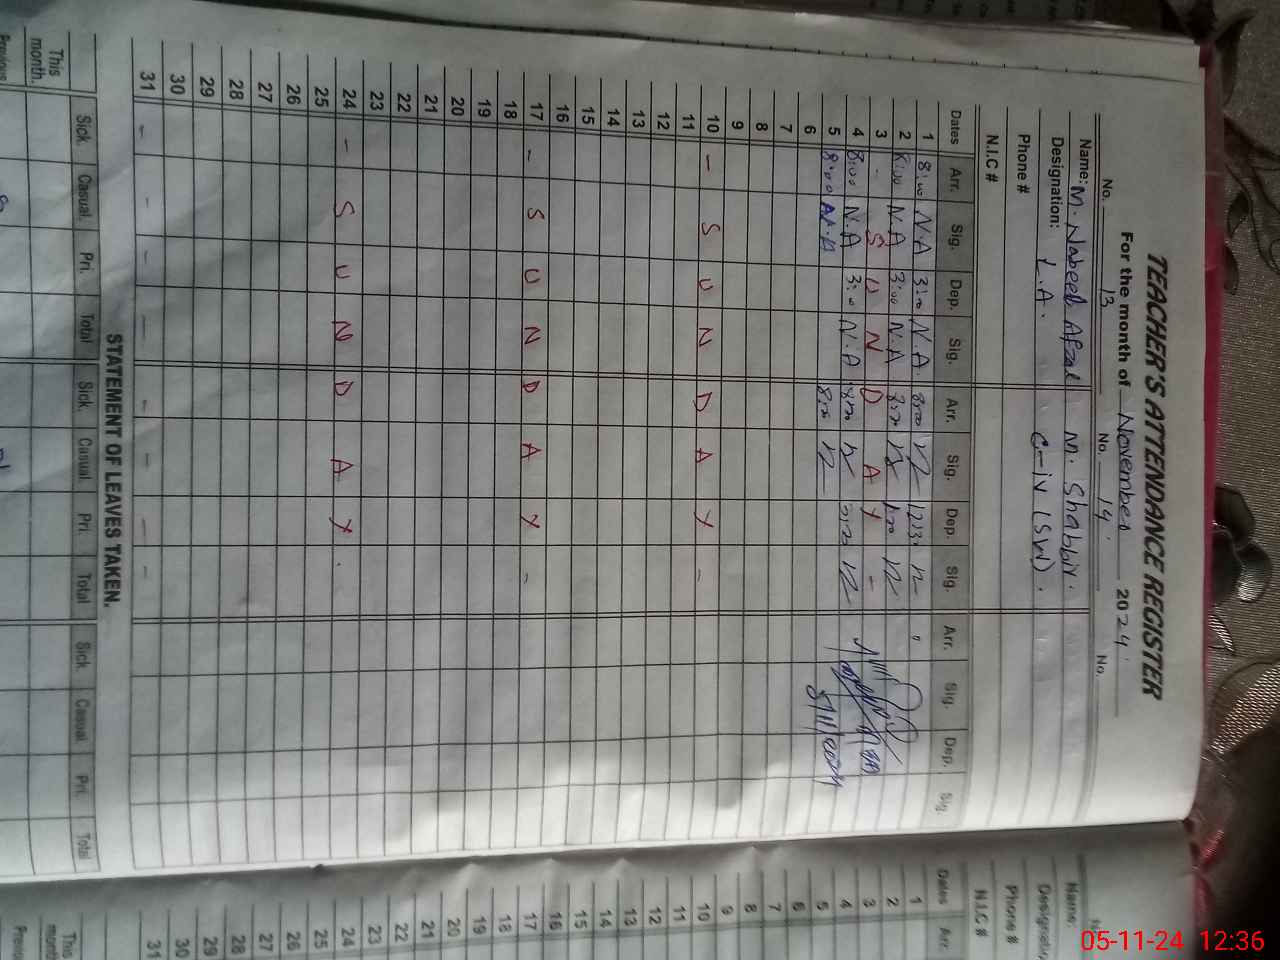 TEACHER'S ATTENDANCE REGISTER
For the month of November 2024
No. 13 No. 14 No.
Name: M. Nabeel Afzal M. Shabbir.
Designation: L.A. C-iv (SW).
Phone #
N.I.C #
Dates Arr. Sig. Dep. Sig. Arr. Sig. Dep. Sig. Arr. Sig. Dep. Sig.
1 8:00 N.A 3:00 N.A 8:00 1230
2 8:00 N.A 3:00 N.A
3 - S U N D A Y -
4 8:00 N.A 3:00 N.A
5 8:00 N.A
6
7
8
9
10 - S U N D A Y -
11
12
13
14
15
16
17 - S U N D A Y -
18
19
20
21
22
23
24 - S U N D A Y .
25
26
27
28
29
30
31 - - - - - - - -
STATEMENT OF LEAVES TAKEN.
Sick. Casual. Pri. Total Sick. Casual Pri. Total Sick. Casual Pri. Total
This month.
Previous
Name:
Phone #
N.I.C #
Dates Arr.
1
2
3
4
5
6
7
8
9
10
11
12
13
14
15
16
17
18
19
20
21
22
23
24
25
26
27
28
29
30
31
This
05-11-24 12:36